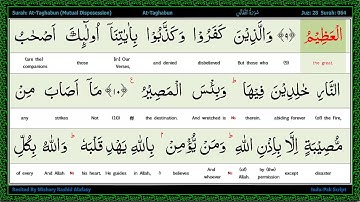 Surah: At-Taghabun (Mutual Disposession) At-Taghabun Juz: 28 Surah: 064
الْعَظِيْمُ ﴿٩﴾ وَالَّذِيْنَ كَفَرُوْا وَكَذَّبُوْا بِاٰيٰتِنَاۤ اُولٰٓئِكَ اَصْحٰبُ
(are the) companions those [in] Our Verses, and denied disbelieved But those who (9) the great.
النَّارِ خٰلِدِيْنَ فِيْهَا ؕ وَبِئْسَ الْمَصِيْرُ ﴿١٠﴾ مَاۤ اَصَابَ مِنْ
any strikes Not (10) the destination. And wretched is therein. abiding forever (of) the Fire
مُّصِيْبَةٍ اِلَّا بِاِذْنِ اللّٰهِ ؕ وَمَنْ يُّؤْمِنْۢ بِاللّٰهِ يَهْدِ قَلْبَهٗ ؕ وَاللّٰهُ بِكُلِّ
of every And Allah his heart. He guides in Allah, believes And whoever (of) Allah. by (the) permission except disaster
Recited By Mishary Rashid Alafasy Indo-Pak Script